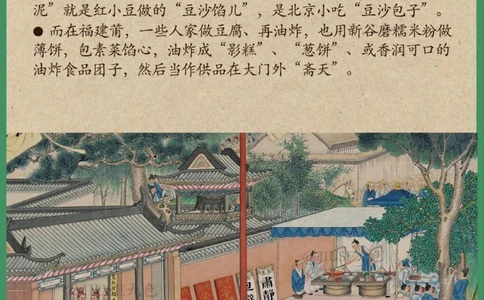 泥”就是红小豆做的“豆沙馅儿”，是北京小吃“豆沙包子”。
●而在福建莆，一些人家做豆腐、再油炸，也用新谷磨糯米粉做
薄饼，包素菜馅心，油炸成“影糕”、“葱饼”、或香润可口的
油炸食品团子，然后当作供品在大门外“斋天”。
肃静